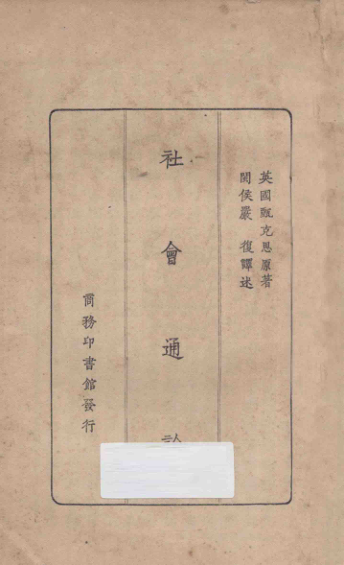 英國甄克思原著
閩侯嚴 復譯述
社會通
商務印書館發行